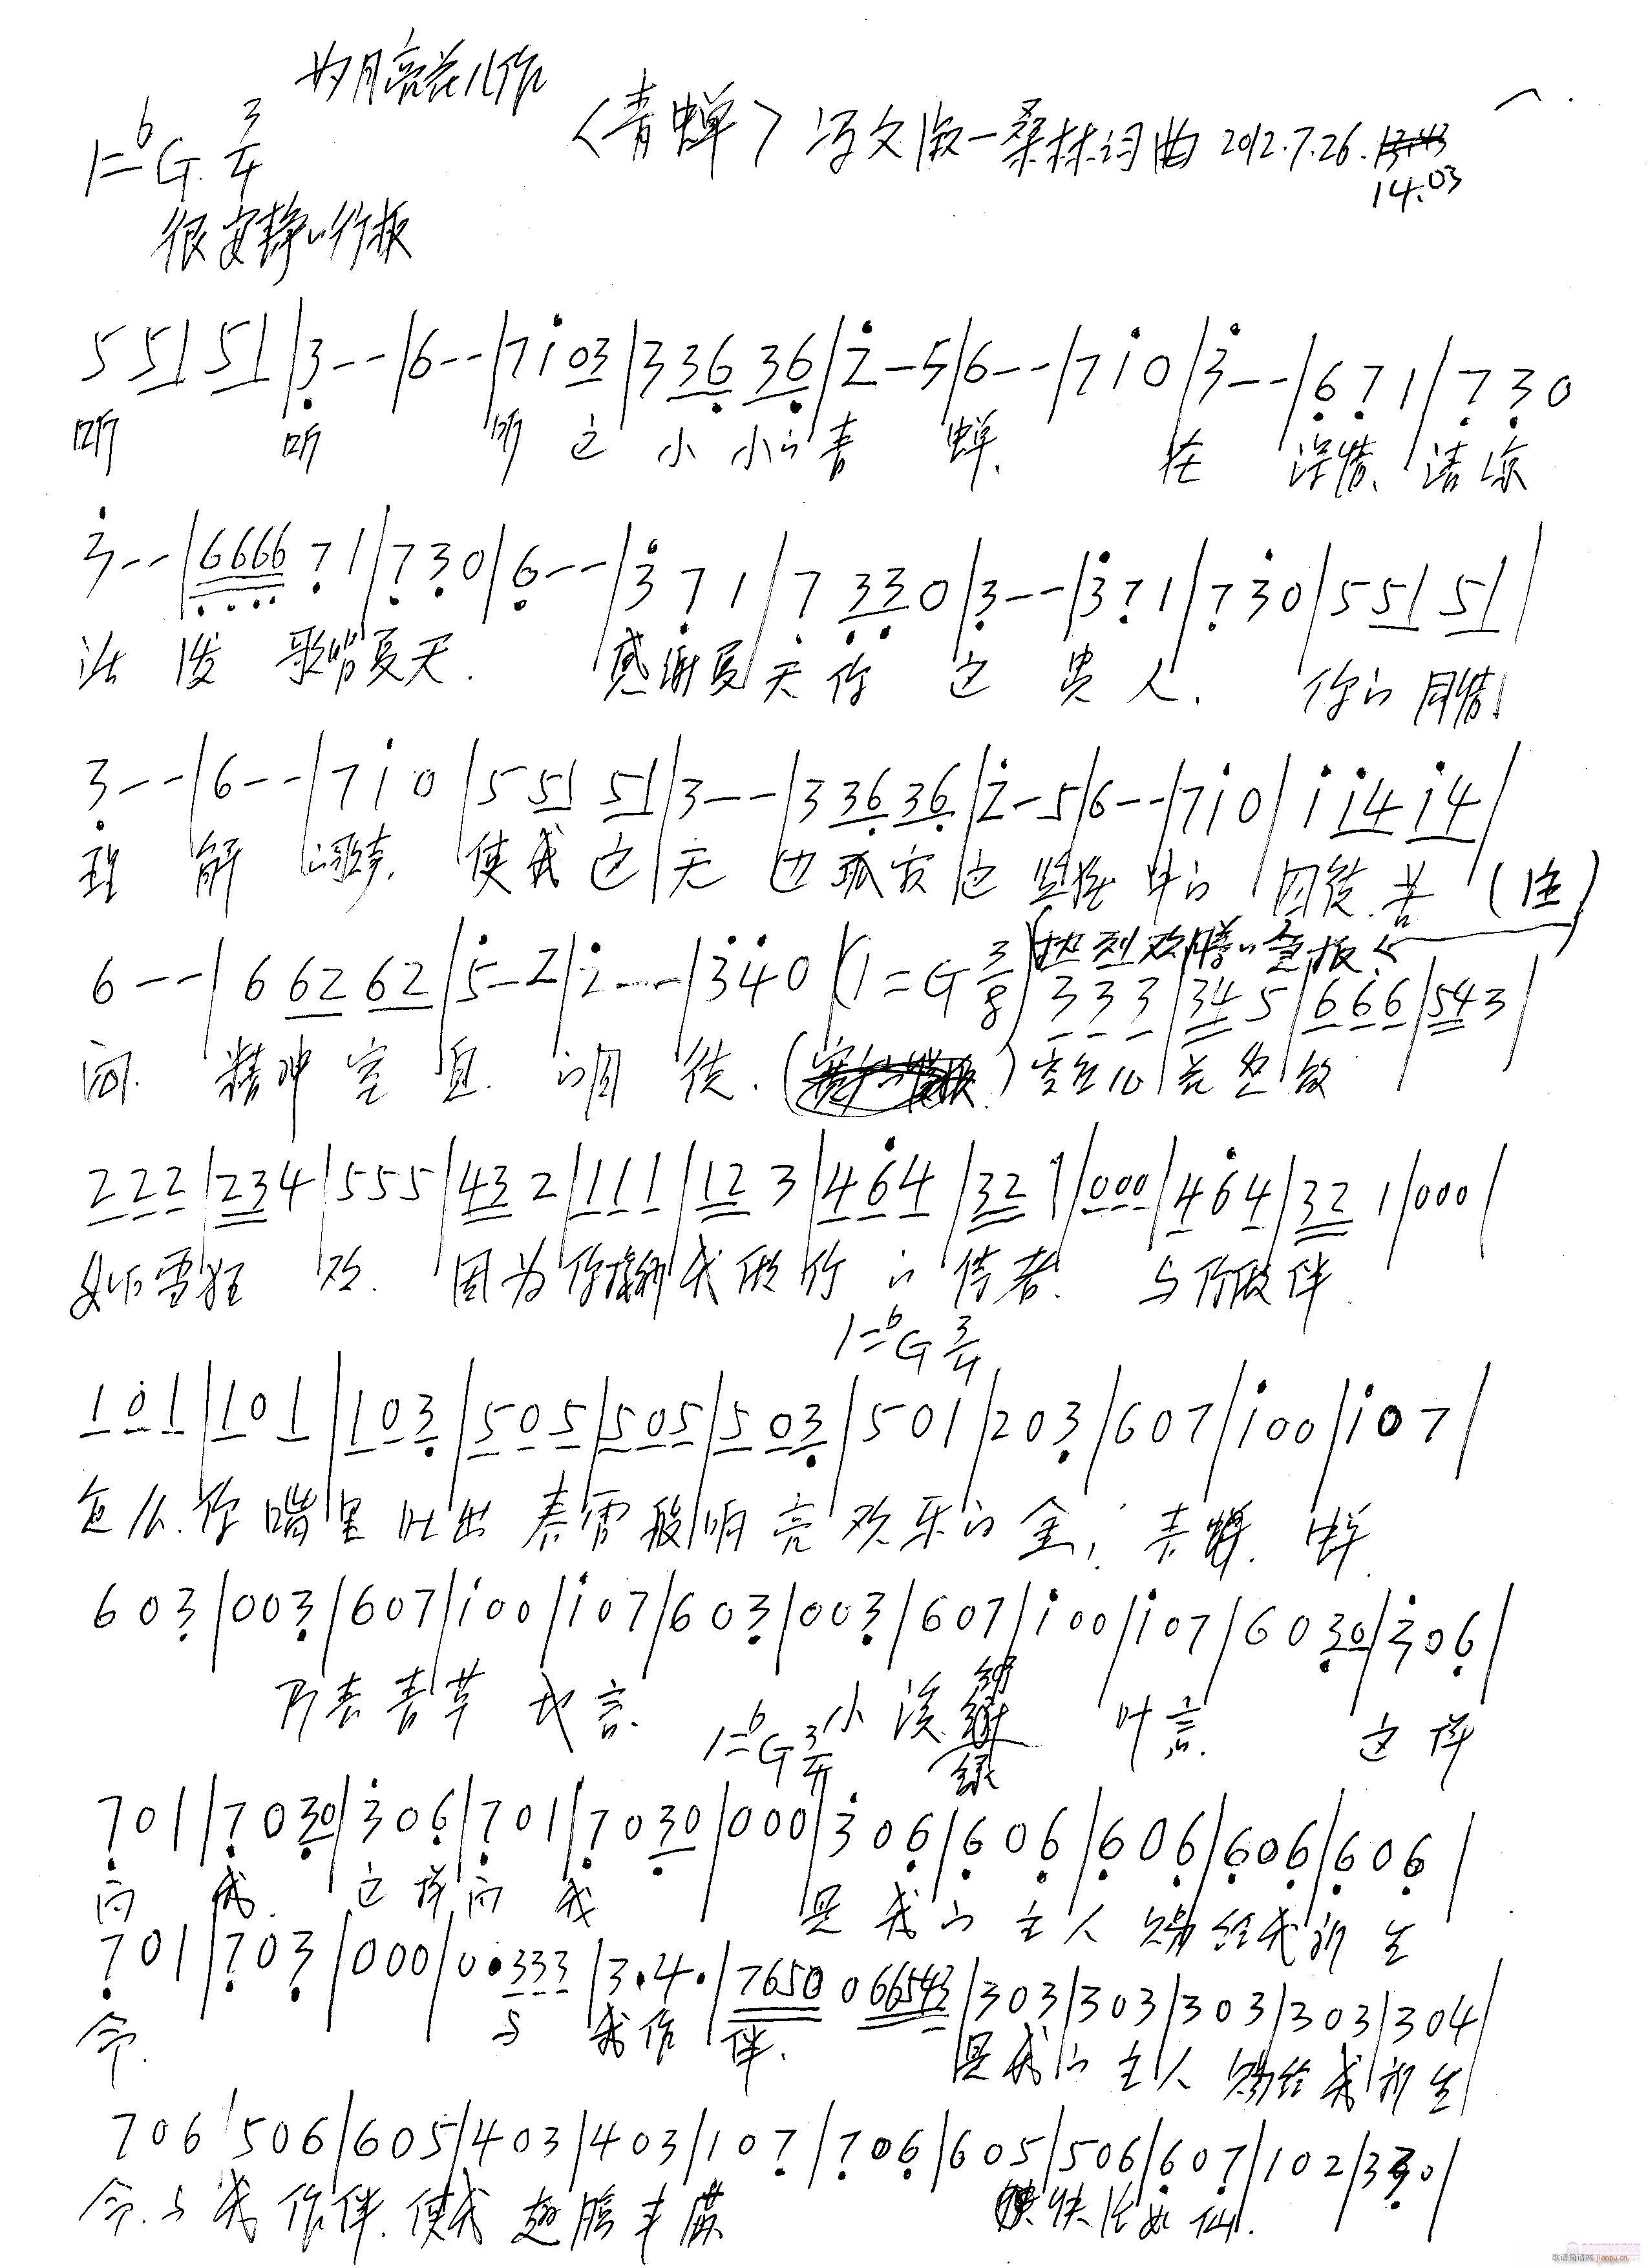 为月亮花儿作
1=♭G 3/4 〈青蝉〉 词曲 2012.7.26. 14.03
很安静的行板
5 51 51 | 3 - - | 6 - - | 7 i 03 | 3 36 36 | 2̇ - 5 | 6 - - | 7 i 0 | 3̇ - - | 6 7 1 | 7 3 0
听 听 听 这 小 小的青 蝉. 在 深情、清凉
3̇ - - | 6666 7 1 | 7 3 0 | 6 - - | 3̇ 7 1 | 7 33 0 | 3 - - | 3̇ 7 1 | 7 3̇ 0 | 5 51 51 |
活 泼 歌唱夏天. 感谢夏天你 这 贵 人. 你的 同情
3 - - | 6 - - | 7 i 0 | 5 51 51 | 3 - - | 3 36 36 | 2̇ - 5 | 6 - - | 7 i 0 | i i4 i4 |
理 解 的歌声. 使我 这 无 边孤寂 这 监狱 中的 囚徒.苦
热烈欢腾的急板
6 - - | 6 62 62 | 5̇ - 2 | 2̇ - - | 3̇ 4̇ 0 | (1=G 3/8) 3 3 3 | 34 5 | 666 | 543 |
闷. 精神窒息 的囚 徒.
222 | 234 | 555 | 432 | 111 | 12 3 | 464 | 32 1 | 000 | 464 | 32 1 | 000 |
如雪狂 欢. 因为你接纳我做你 的侍者. 与你做伴.
1=♭G 3/4
101 | 101 | 103 | 505 | 505 | 503 | 501 | 203 | 607 | i00 | i07 |
怎么.你嘴里吐出 春雷般响亮 欢乐的金, 青蝉. 蝉.
603 | 003 | 607 | i00 | i07 | 603 | 003 | 607 | i00 | i07 | 6030 | 3̇06 |
青青草 小溪 叶言. 这样
1=♭G 3/4 绿
701 | 7030 | 3̇06 | 701 | 7030 | 000 | 3̇06 | 606 | 606 | 606 | 606 |
向 我. 这样向 我 是我的主人 赐给我新生
701 | 703 | 000 | 0·333 | 3·4· | 7650 066543 | 303 | 303 | 303 | 303 | 304 |
命. 与 我作 伴. 是我的主人 赐给我新生
706 | 506 | 605 | 403 | 403 | 107 | 706 | 605 | 506 | 607 | 102 | 330 |
命.与我作伴.使我 翅膀丰满 快活如仙.
歌谱简谱网 jianpu.cn